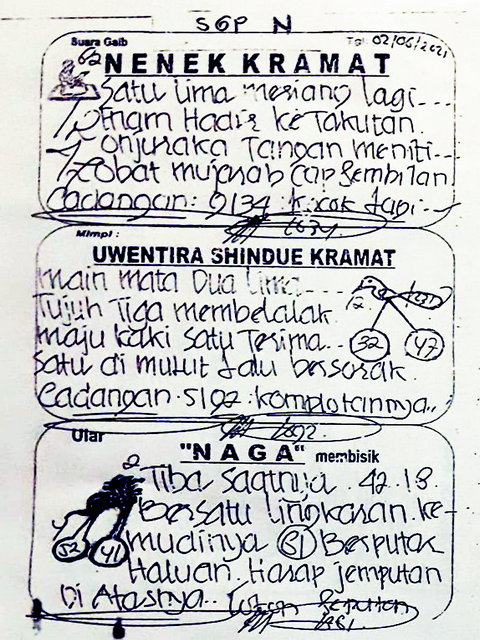 SGP N
Suara Gaib
Tgl. 02/06/2021
NENEK KRAMAT
Satu Lima meriang lagi...
Enam Hadir keTakutan.
Tangan meniti...
obat mujarab cap sembilan
Cadangan: 9134: kocok
Mimpi :
UWENTIRA SHINDUE KRAMAT
main mata Dua Lima...
Tujuh Tiga membelalak
maju kaki satu Terima...
32 47
Satu di mulut lalu bersorak.
Cadangan. 5197: komplotannya..
Ular
"NAGA" membisik
Tiba saatnya. 42.18.
Bersatu lingkaran. ke-
52 41
mudinya 81 Berputar
Haluan. Harap jemputan
Di Atasnya..